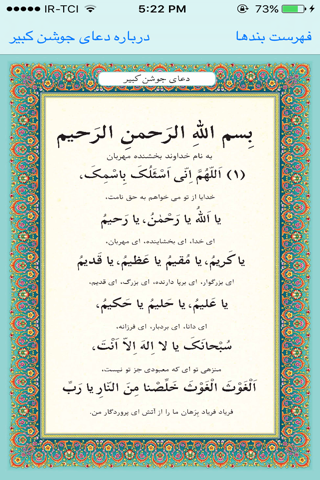 IR-TCI 5:22 PM 73%
درباره دعای جوشن کبیر
فهرست بندها
دعای جوشن کبیر
بِسمِ اللهِ الرَحمنِ الرَحیم
به نام خداوند بخشنده مهربان
(۱) اَللّهُمَّ اِنّی اَسْئَلُکَ بِاسْمِکَ،
خدایا از تو می خواهم به حق نامت،
یا اَللهُ یا رَحْمٰنُ، یا رَحیمُ
ای خدا، ای بخشاینده، ای مهربان،
یاکَریمُ، یا مُقیمُ یا عَظیمُ، یا قَدیمُ
ای بزرگوار، ای برپا دارنده، ای بزرگ، ای قدیم،
یا عَلیمُ، یا حَلیمُ یا حَکیمُ،
ای دانا، ای بردبار، ای فرزانه.
سُبْحانَکَ یا لا اِلهَ اِلاّ اَنْتَ،
منزهی تو ای که معبودی جز تو نیست،
اَلْغَوْثَ الْغَوْثَ خَلِّصْنا مِنَ النّارِ یا رَبِّ
فریاد فریاد بِرَهان ما را از آتش ای پروردگار من.